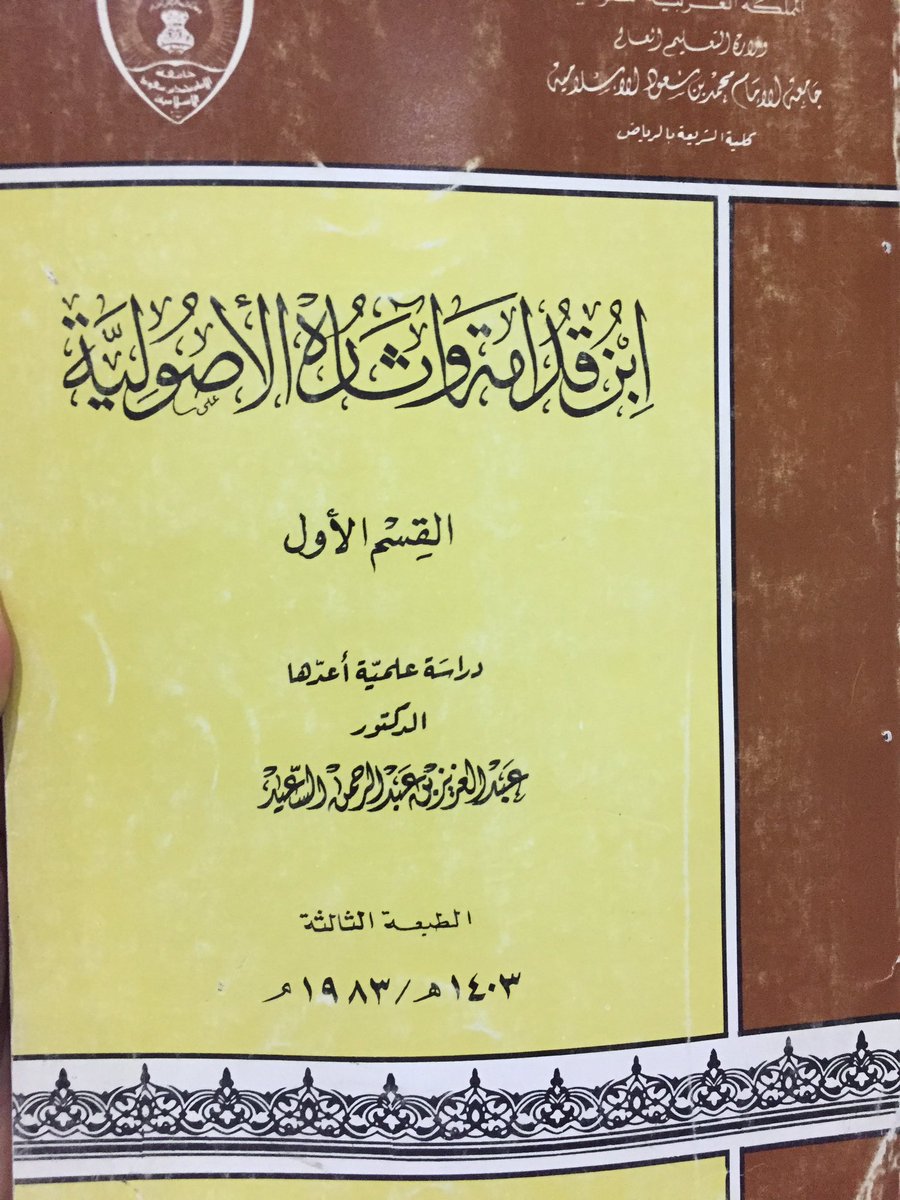 المملكة العربية السعودية
وزارة التعليم العالي
جامعة الإمام محمد بن سعود الإسلامية
كلية الشريعة بالرياض
جامعة
الإمام محمد بن سعود
الإسلامية
ابْنُ قُدَامَة وَآثَارُهُ الأُصُولِيَّة
القِسْم الأول
دراسَة علميّة أعدّها
الدكتور
عَبْد العزيز بن عَبْد الرحمن السَّعيد
الطبعة الثالثة
١٤٠٣هـ/١٩٨٣م